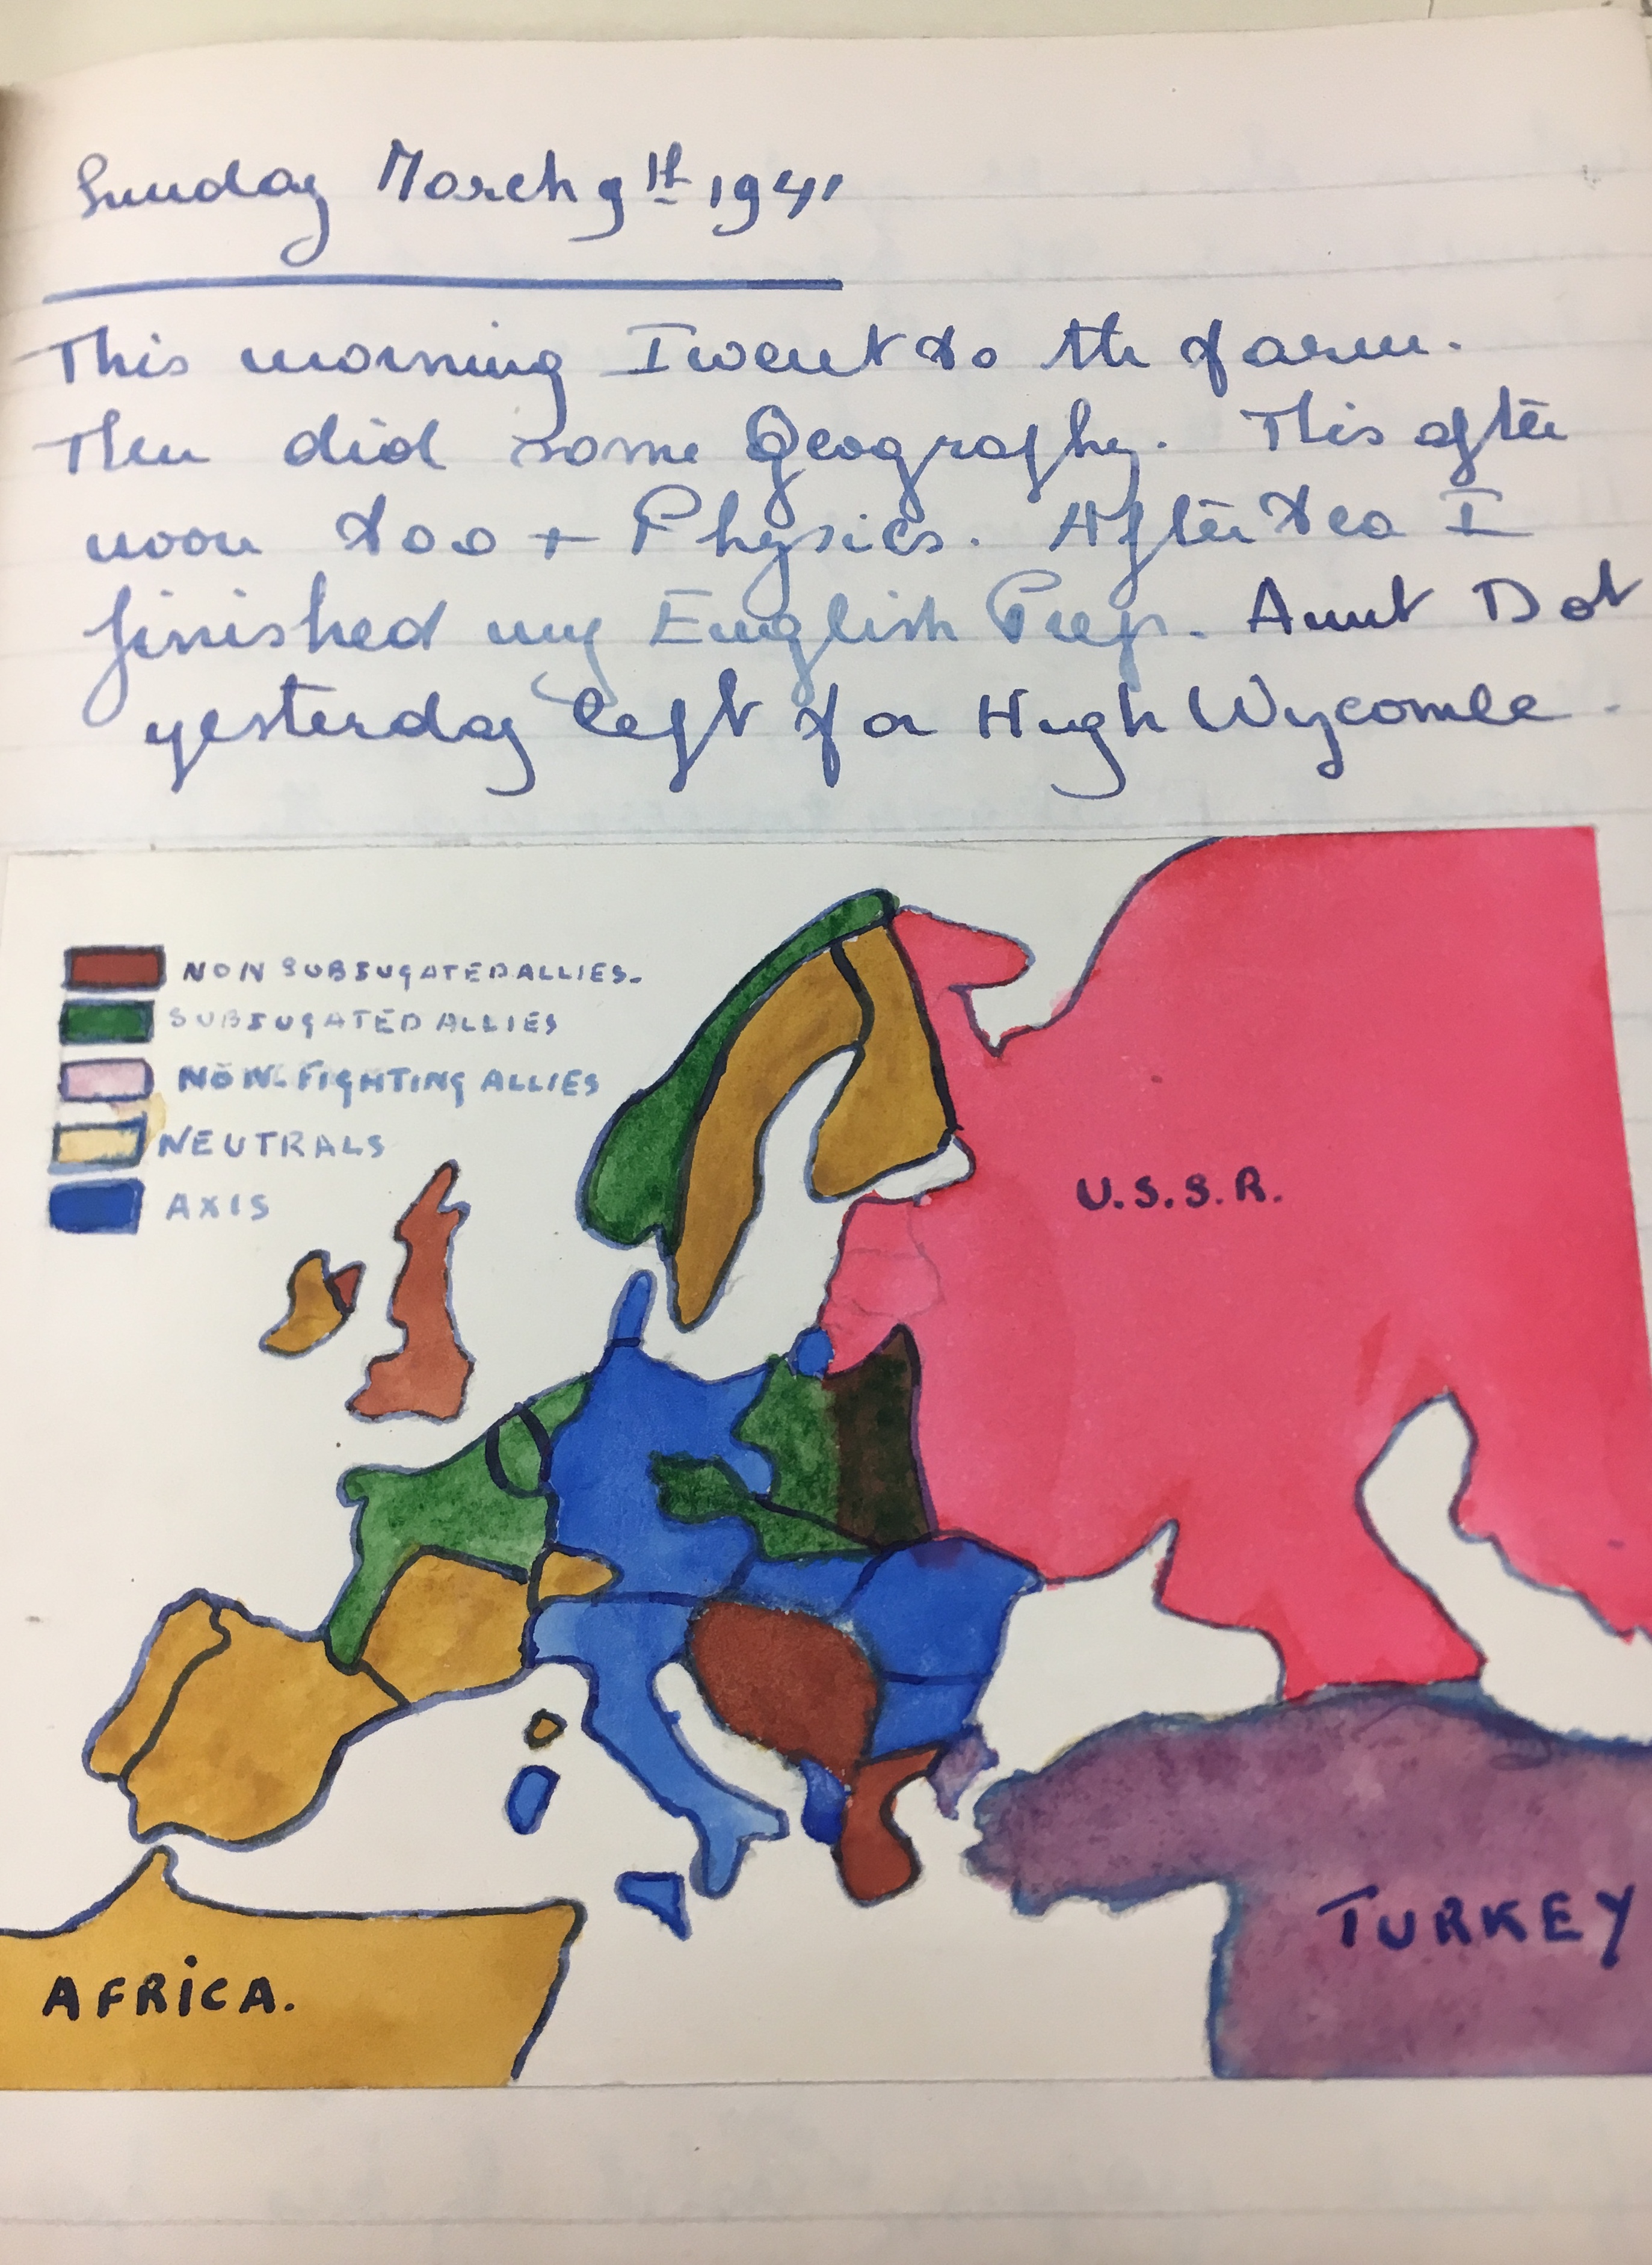 Sunday March 9th 1941
This morning I went to the farm.
Then did some Geography. This after
noon too + Physics. After tea I
finished my English Prep. Aunt Dot
yesterday left for High Wycombe.
NON SUBJUGATED ALLIES.
SUBJUGATED ALLIES
NON-FIGHTING ALLIES
NEUTRALS
AXIS
U.S.S.R.
TURKEY
AFRICA.